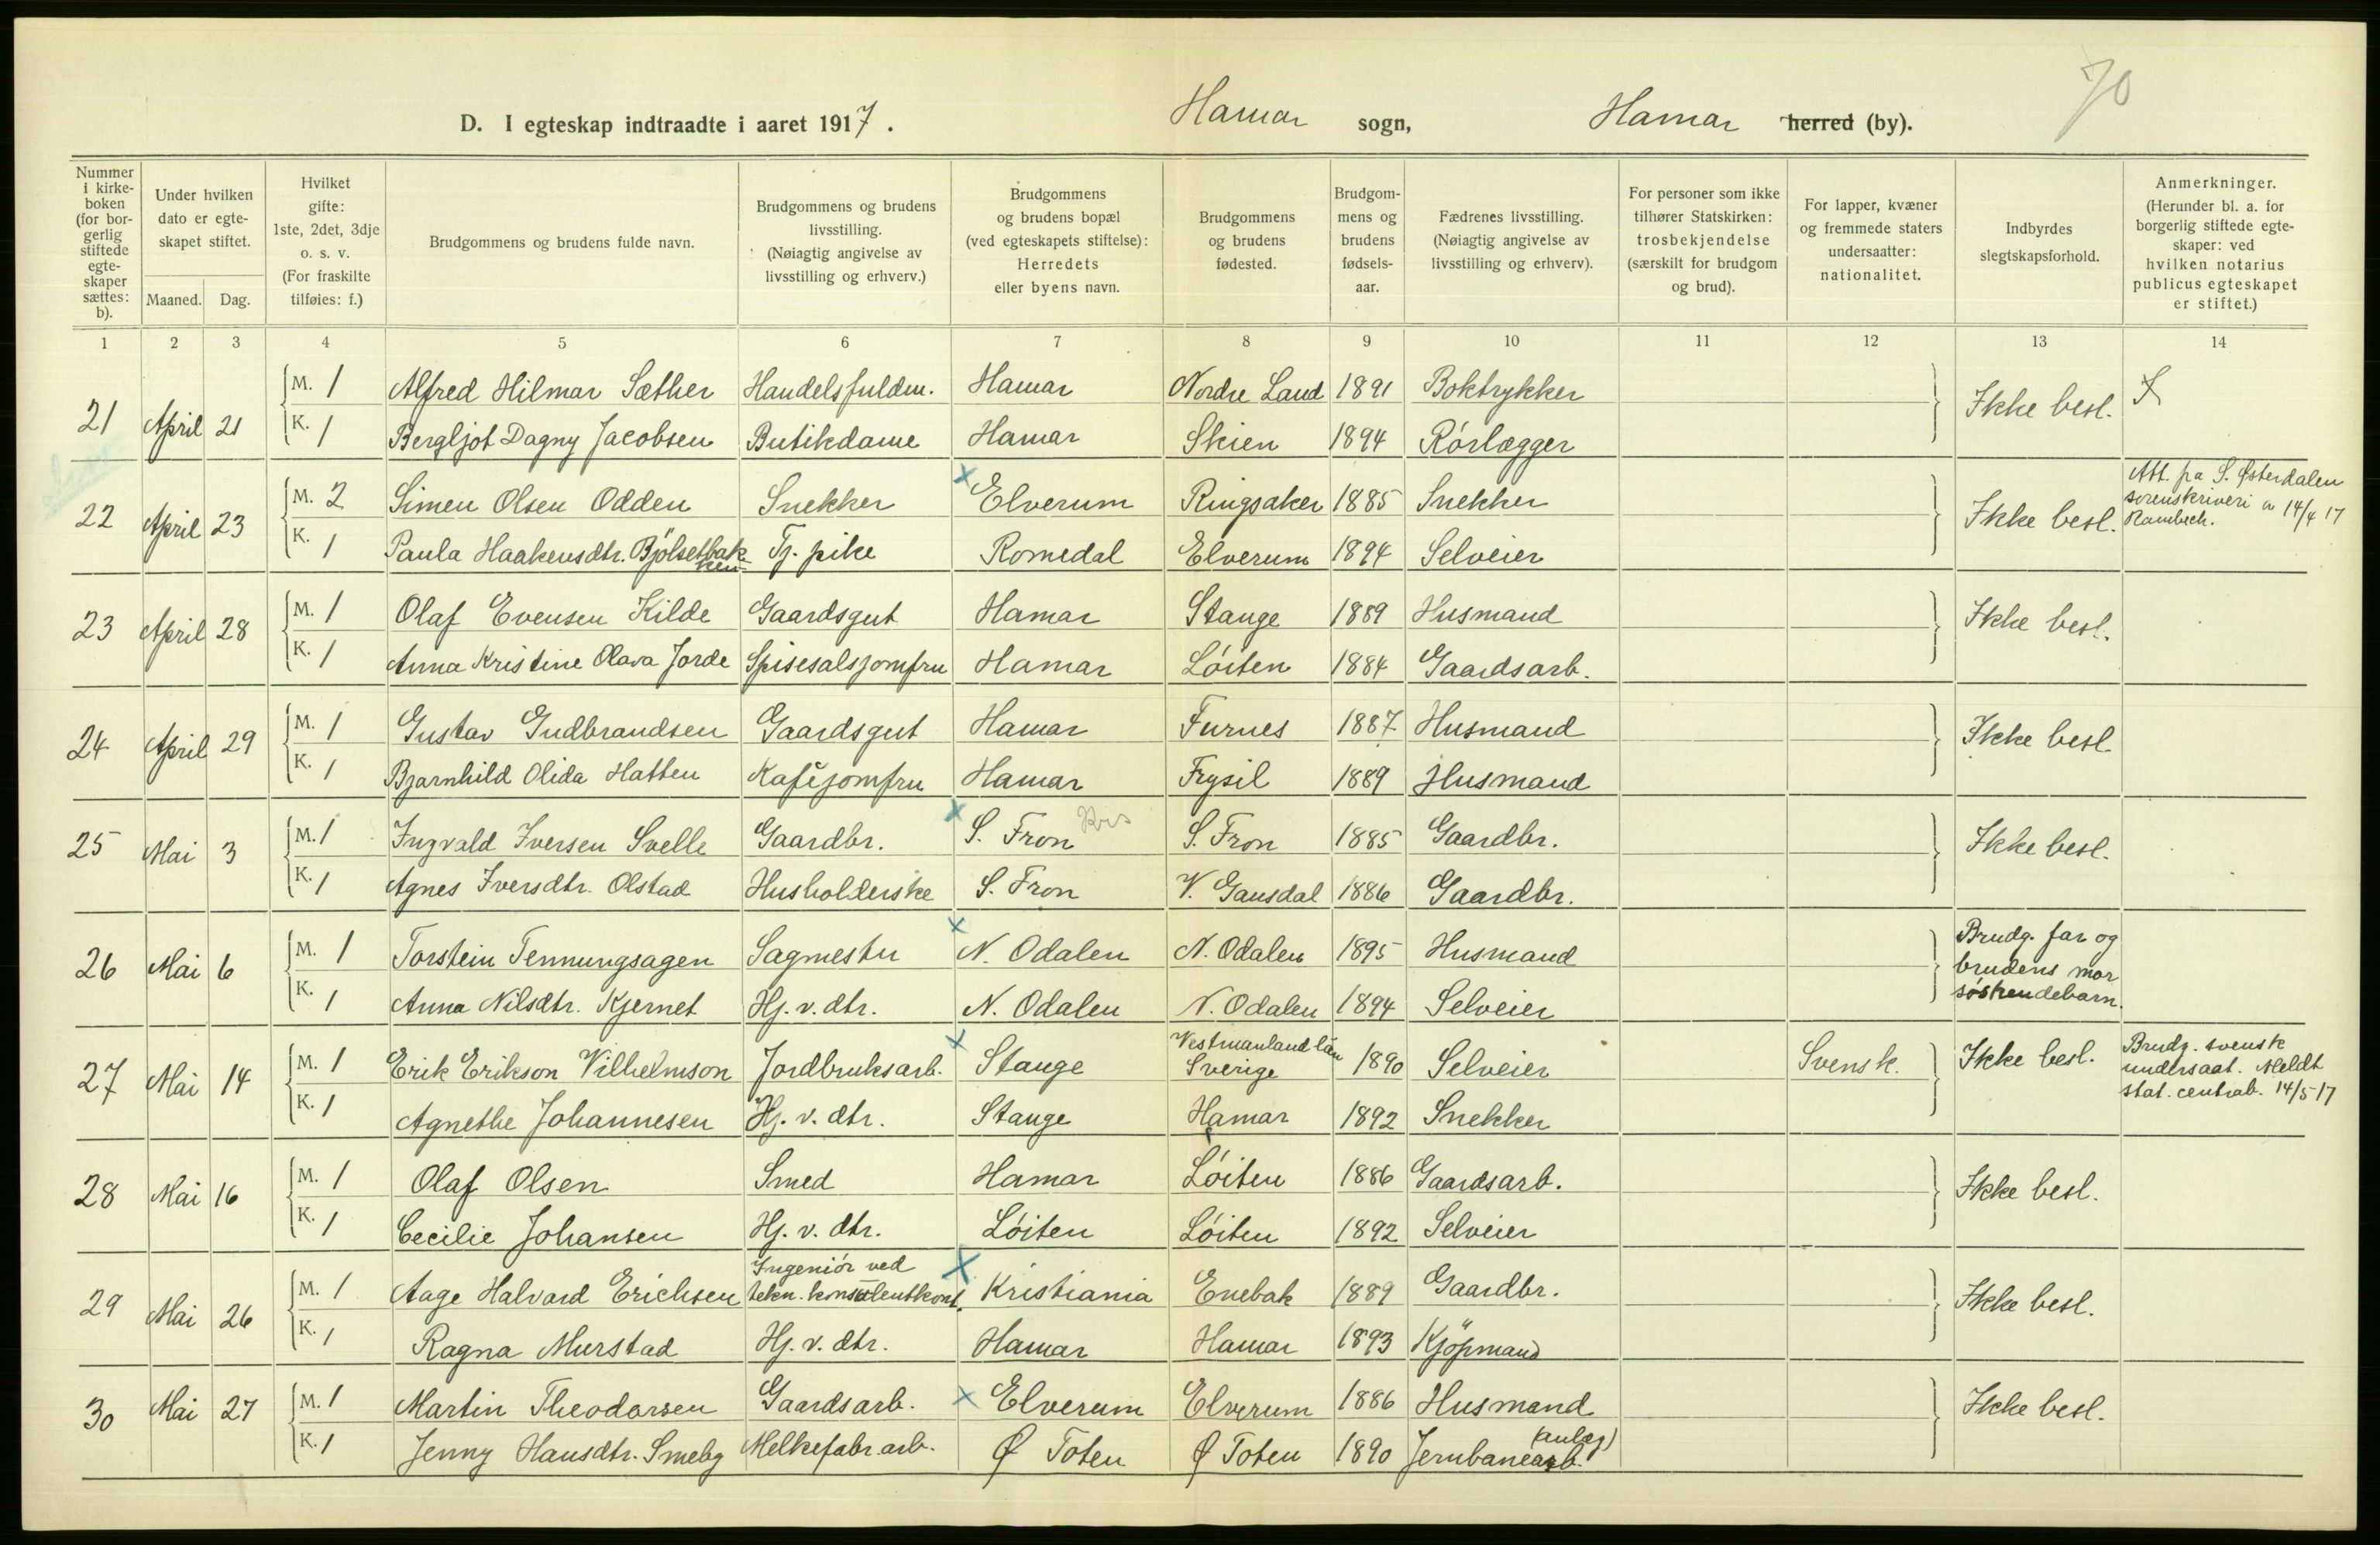 70
D. I egteskap indtraadte i aaret 1917. Hamar sogn, Hamar herred (by).
Nummer i kirke-boken (for bor-gerlig stiftede egte-skaper sættes: b).
Under hvilken dato er egte-skapet stiftet.
Maaned. Dag.
Hvilket gifte: 1ste, 2det, 3dje o. s. v. (For fraskilte tilføies: f.)
Brudgommens og brudens fulde navn.
Brudgommens og brudens livsstilling. (Nøiagtig angivelse av livsstilling og erhverv.)
Brudgommens og brudens bopæl (ved egteskapets stiftelse): Herredets eller byens navn.
Brudgommens og brudens fødested.
Brudgom-mens og brudens fødsels-aar.
Fædrenes livsstilling. (Nøiagtig angivelse av livsstilling og erhverv).
For personer som ikke tilhører Statskirken: trosbekjendelse (særskilt for brudgom og brud).
For lapper, kvæner og fremmede staters undersaatter: nationalitet.
Indbyrdes slegtskapsforhold.
Anmerkninger. (Herunder bl. a. for borgerlig stiftede egte-skaper: ved hvilken notarius publicus egteskapet er stiftet.)
1 2 3 4 5 6 7 8 9 10 11 12 13 14
21 April 21 M. 1 Alfred Hilmar Sæther Handelsfuldm. Hamar Nordre Land 1891 Boktrykker Ikke besl.
K. 1 Bergljot Dagny Jacobsen Butikdame Hamar Skien 1894 Rórlægger
22 April 23 M. 2 Simen Olsen Odden Snekker x Elverum Ringsaker 1885 Snekker Ikke besl. Att. fra S. Østerdalen sorenskriveri av 14/4 17 Rambech.
K. 1 Paula Haakensdtr. Bjölsetbakken Tj. pike Romedal Elverum 1894 Selveier
23 April 28 M. 1 Olaf Evensen Kilde Gaardsgut Hamar Stange 1889 Husmand Ikke besl.
K. 1 Anna Kristine Olava Jorde Spisesalsjomfru Hamar Lóiten 1884 Gaardsarb.
24 April 29 M. 1 Gustav Gudbrandsen Gaardsgut Hamar Furnes 1887 Husmand Ikke besl.
K. 1 Bjarnhild Olida Hatten Kaféjomfru Hamar Frysil 1889 Husmand
25 Mai 3 M. 1 Ingvald Iversen Svelle Gaardbr. x S. Fron S. Fron 1885 Gaardbr. Ikke besl.
K. 1 Agnes Iversdtr. Olstad Husholderske S. Fron V. Gausdal 1886 Gaardbr.
26 Mai 6 M. 1 Torstein Tennungsagen Sagmester x N. Odalen N. Odalen 1895 Husmand Brudg. far og brudens mor søskendebarn.
K. 1 Anna Nilsdtr. Kjernet Hj. v. dtr. N. Odalen N. Odalen 1894 Selveier
27 Mai 14 M. 1 Erik Erikson Vilhelmson Jordbruksarb. x Stange Vestmanland län Sverige 1890 Selveier Svensk. Ikke besl. Brudg. svensk undersaat. Meldt stat. centralb. 14/5 17
K. 1 Agnethe Johannesen Hj. v. dtr. Stange Hamar 1892 Snekker
28 Mai 16 M. 1 Olaf Olsen Smed Hamar Lóiten 1886 Gaardsarb. Ikke besl.
K. 1 Cecilie Johansen Hj. v. dtr. Lóiten Lóiten 1892 Selveier
29 Mai 26 M. 1 Aage Halvard Erichsen Ingeniór ved tekn. konsulentkont. x Kristiania Enebak 1889 Gaardbr. Ikke besl.
K. 1 Ragna Murstad Hj. v. dtr. Hamar Hamar 1893 Kjöpmand
30 Mai 27 M. 1 Martin Theodorsen Gaardsarb. x Elverum Elverum 1886 Husmand Ikke besl.
K. 1 Jenny Hansdtr. Smeby Melkefabr. arb. Ø Toten Ø Toten 1890 Jernbanearb. (anlæg)